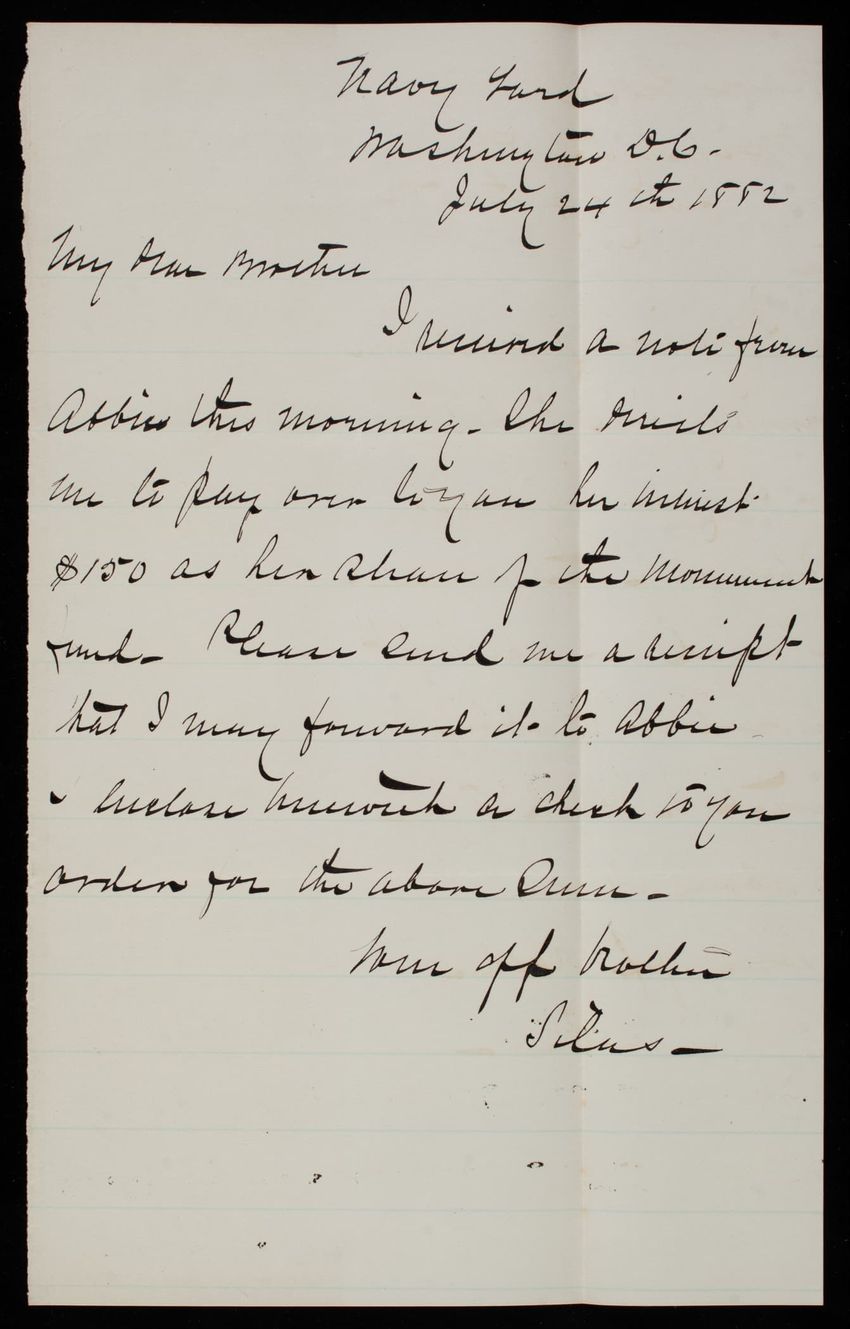 Navy Yard
Washington D.C.
July 24th 1882
My dear Brother
I received a note from
Abbie this morning - She directs
me to pay over to you her interest
$150 as her share of the Monument
fund - Please send me a receipt
that I may forward it to Abbie
I enclose herewith a check to you
order for the above sum -
Your aff brother
Silas -